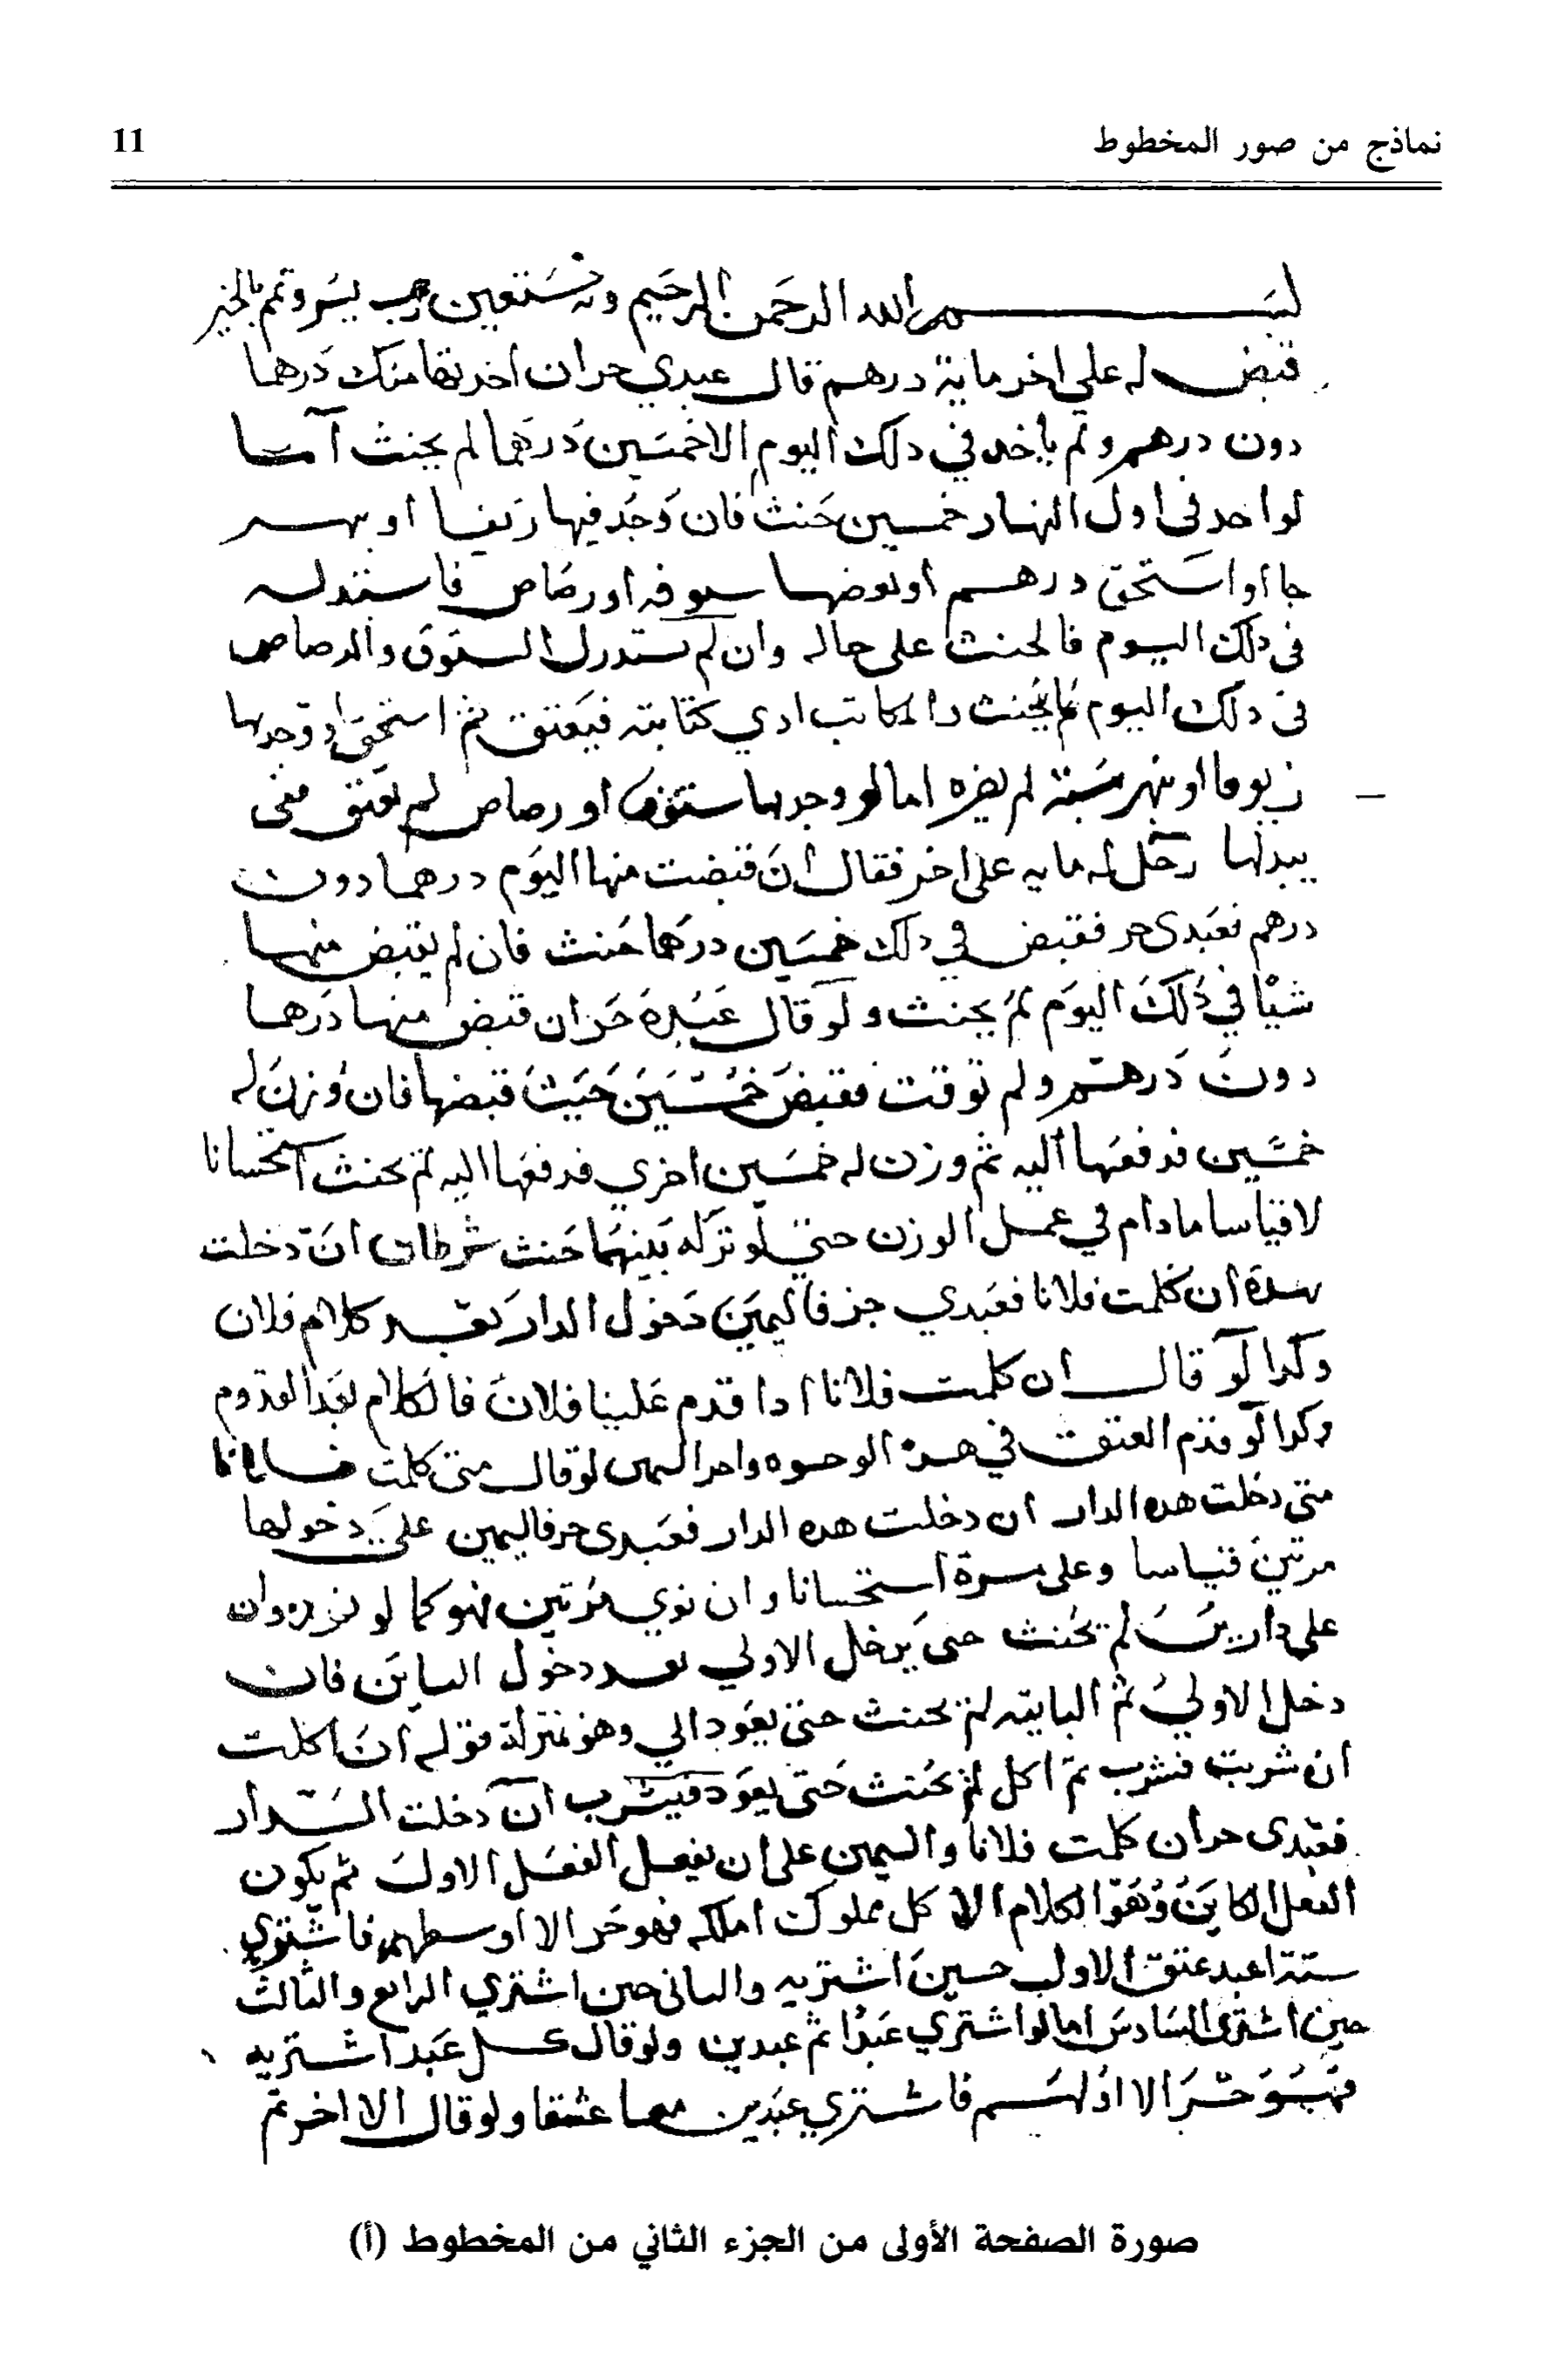 نماذج من صور المخطوط
11
بسم الله الرحمن الرحيم وبه نستعين رب يسر وتمم بالخير
قبض له على اخر ماية درهم قال عبدي حر ان اخدتها منك درهما
دون درهم ولم ياخد في دلك اليوم الا خمسين درهما لم يحنث
لو اخد في اول النهار خمسين حنث فان وجد فيها زيفا او نبهر
جا او استحق درهم او بعضها ستوقه او رصاص فاستبدله
في دلك اليوم فالحنث على حاله وان لم يستبدل الستوق والرصاص
في دلك اليوم لم يحنث المكاتب ادي كتابته فيعتق ثم استحق او وجدها
زيوفا او نبهرجة لم يضره اما لو وجدها ستوقه او رصاص لم يعتق متى
يبدلها رجل له مايه على اخر فقال ان قبضت منها اليوم درهما دون
درهم فعبدي حر فقبض في دلك خمسين درهما حنث فان لم يقبض منها
شيا في دلك اليوم لم يحنث ولو قال عبده حر ان قبض منها درهما
دون درهم ولم توقت فقبض خمسين حيث قبضها فان وزن له
خمسين فدفعها اليه ثم وزن له خمسين اخري فدفعها اليه لم يحنث استحسانا
لا قياسا ما دام في عمل الوزن حتي لو تركه بينهما حنث شرطان ان دخلت
هده ان كلمت فلانا فعبدي حر فاليمين دخول الدار بعد كلام فلان
وكدا لو قال ان كلمت فلانا ادا قدم علينا فلان فالكلام بعد القدوم
وكدا لو قدم العتق في هده الوجوه واحد اليمين لو قال متى كلمت فلانا
متي دخلت هده الدار ان دخلت هده الدار فعبدي حر فاليمين على دخولها
مرتين قياسا وعلى مرة استحسانا وان نوي مرتين فهو كما لو نوي وان
على دارين لم يحنث حتى يدخل الاولي بعد دخول الثاني فان
دخل الاولي ثم الثانيه لم يحنث حتى يعود الي وهو بمنزلة قوله ان اكلت
ان شربت فشرب ثم اكل لم يحنث حتى يعود فيشرب ان دخلت الدار
فعبدي حر ان كلمت فلانا واليمين على ان يفعل الفعل الاول ثم يكون
الفعل الثاني وهو الكلام الا كل مملوك املكه فهو حر الا اوسطهم فاشتري
ستة اعبد عتق الاول حين اشتريه والثاني حين اشتري الرابع والثالث
حين اشترى السادس اما لو اشتري عبدا ثم عبدين ولو قال كل عبد اشتريه
فهو حر الا اولهم فاشتري عبدين معا عتقا ولو قال الا اخرتم
صورة الصفحة الأولى من الجزء الثاني من المخطوط (أ)